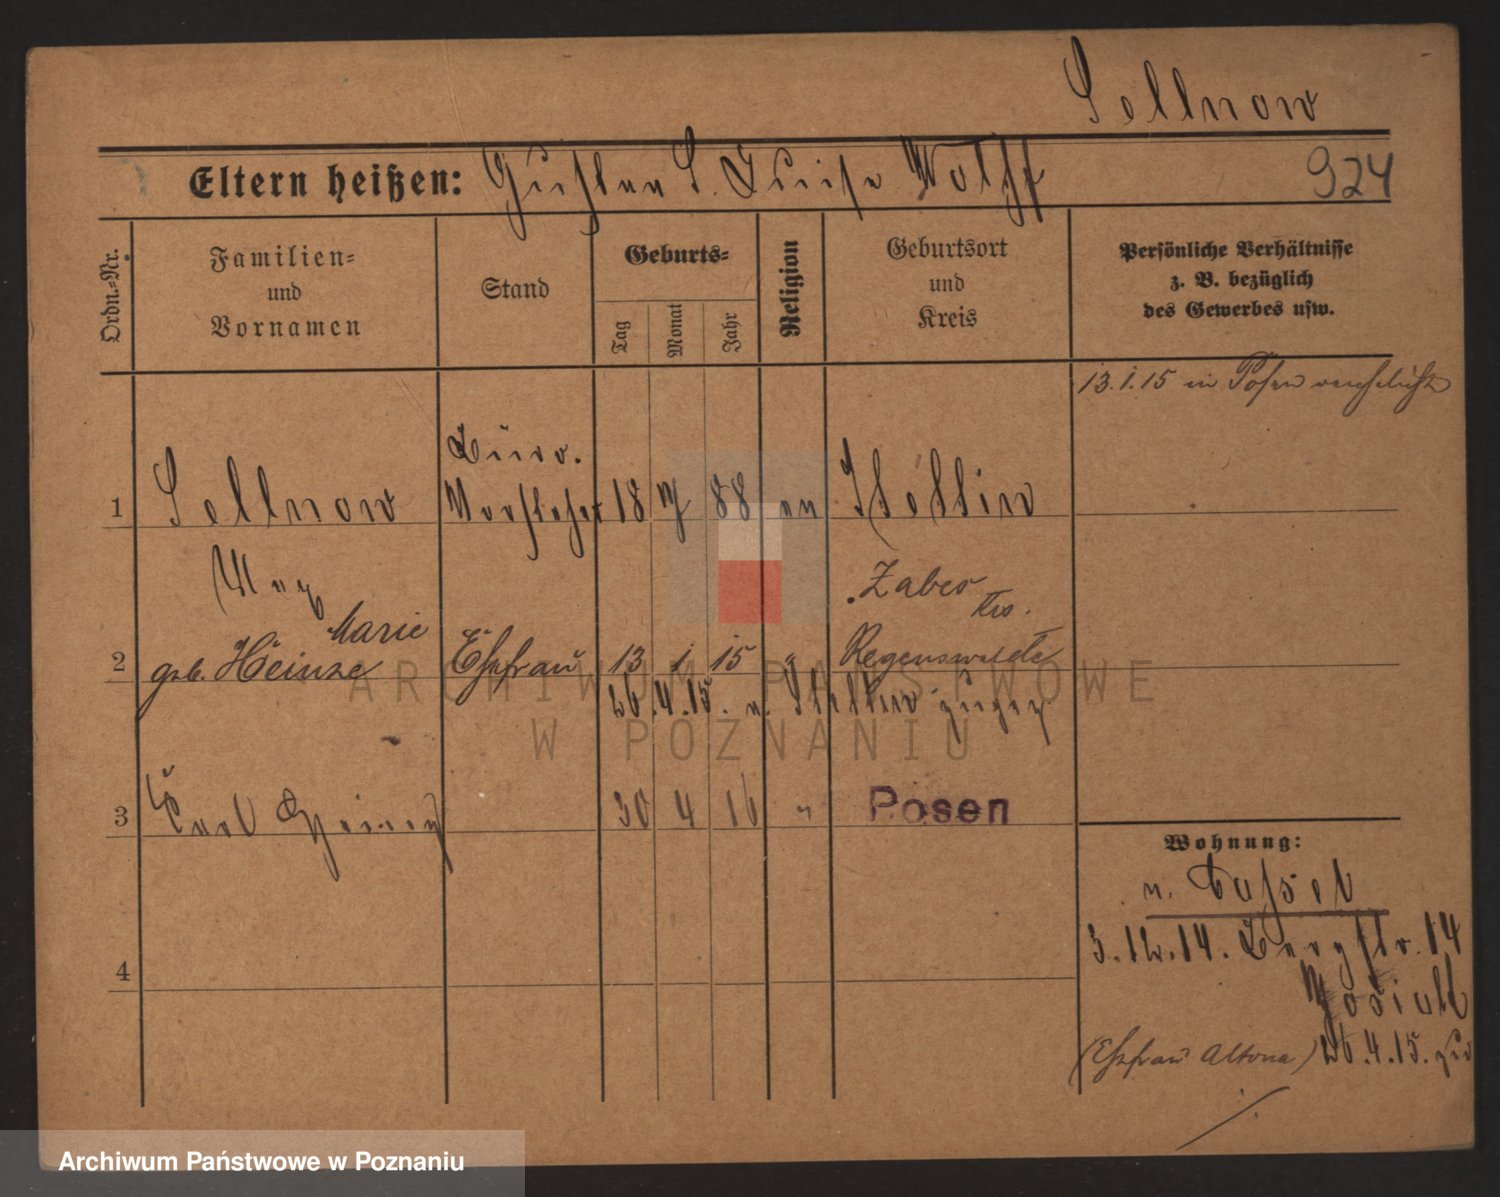 Sellnow
Eltern heißen: Gustav S. Luise Wolff
924
Ordn.-Nr.
Familien-
und
Vornamen
Stand
Geburts-
Tag
Monat
Jahr
Religion
Geburtsort
und
Kreis
Persönliche Verhältnisse
z. B. bezüglich
des Gewerbes usw.
13.1.15 in Posen verehelicht
1 Sellnow
Max
Büro.
Vorsteher
18 7 88 ev Stettin
2 Marie
geb. Heinze
Ehefrau 13 1 15 "
Zabes Krs.
Regenswalde
26.4.15. v. Stettin zugez
3 Carl Heinz 30 4 16 " Posen
4
Wohnung:
n. Cassel
3.12.14. Bergstr. 14
(Ehefrau Altona) 26.4.15.
ARCHIWUM PAŃSTWOWE
W POZNANIU
Archiwum Państwowe w Poznaniu